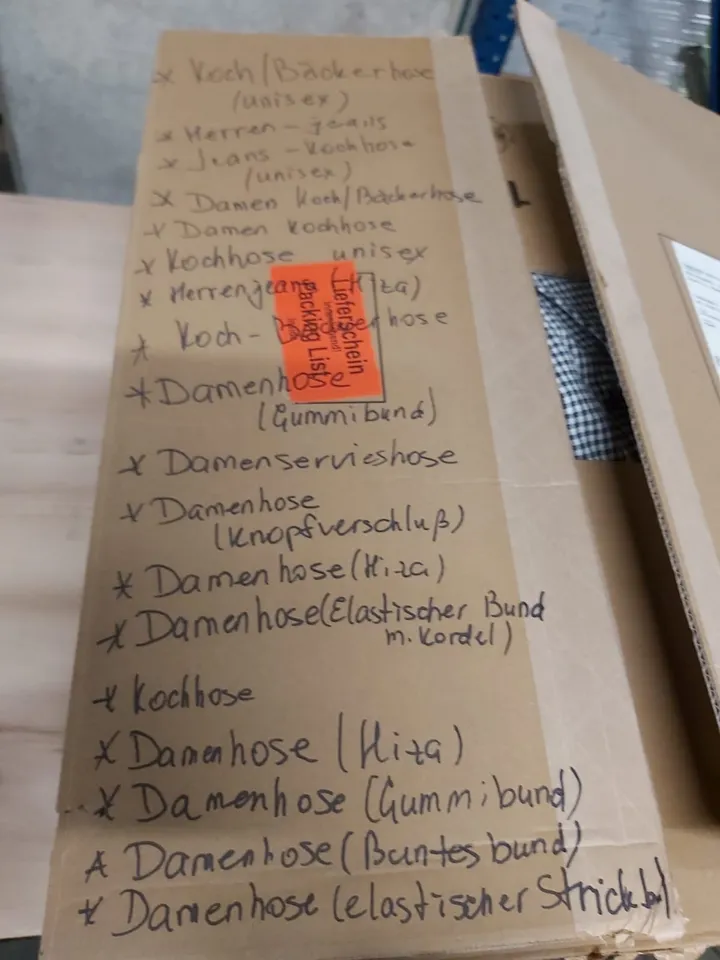 * Koch/Bäckerhose
(unisex)
* Herren-jeans
* Jeans-Kochhose
(unisex)
* Damen Koch/Bäckerhose
* Damen Kochhose
* Kochhose unisex
* Herrenjeans (Hiza)
* Koch-Bäckerhose
Lieferschein
Packing List
* Damenhose
(Gummibund)
* Damenservieshose
* Damenhose
(Knopfverschluß)
* Damenhose (Hiza)
* Damenhose (Elastischer Bund
m. Kordel)
* Kochhose
* Damenhose (Hiza)
* Damenhose (Gummibund)
* Damenhose (Buntesbund)
* Damenhose (elastischer
L